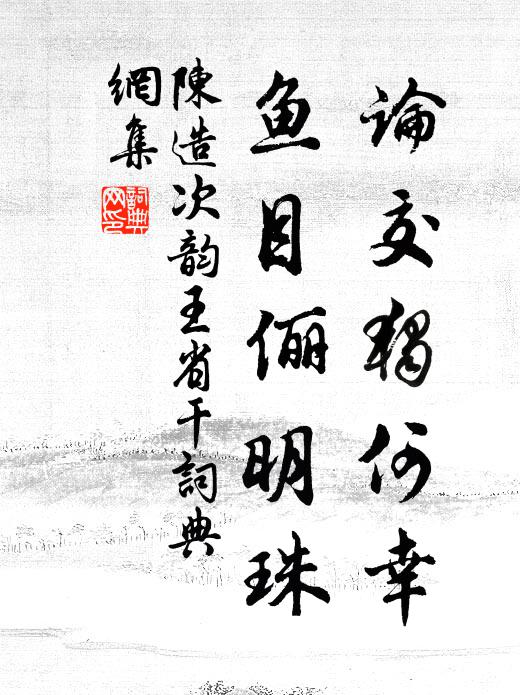 論交獨何幸
魚目儷明珠
陳造次韵王省干詞典
網集
詞典网印